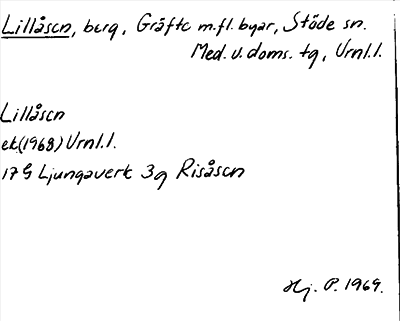 Lillåsen, berg, Gräfte m.fl. byar, Stöde sn.
Med. v. doms. tg, Vrnl.l.
Lillåsen
ek(1968) Vrnl.l.
17 G Ljungaverk 3g Risåsen
Hj. P. 1969.